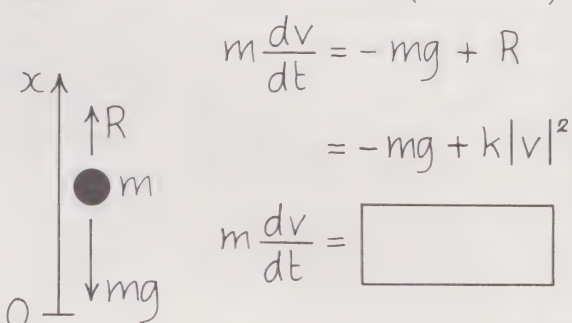 m dv/dt = - mg + R
= - mg + k|v|²
m dv/dt =
x
R
m
mg
O